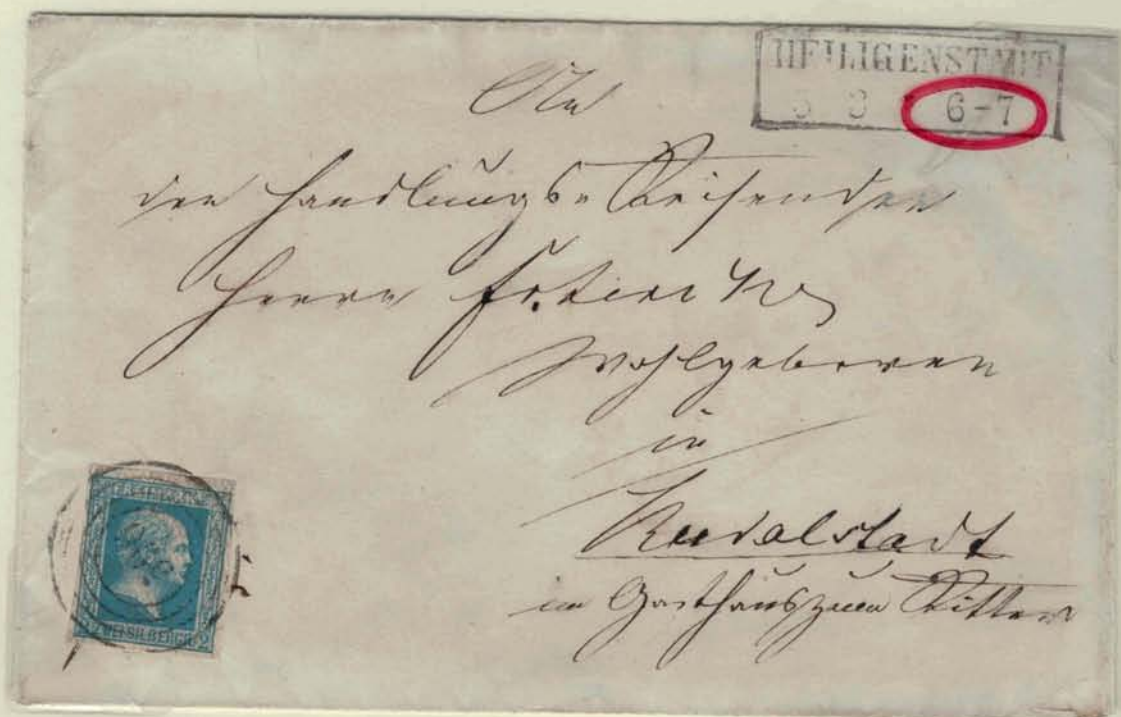 HEILIGENSTADT
5 3 6-7
An
den Handlungs-Reisenden
Herrn
Wohlgeboren
in
Rudolstadt
im Gasthaus zum Ritter
ZWEI SILBERGR. 2